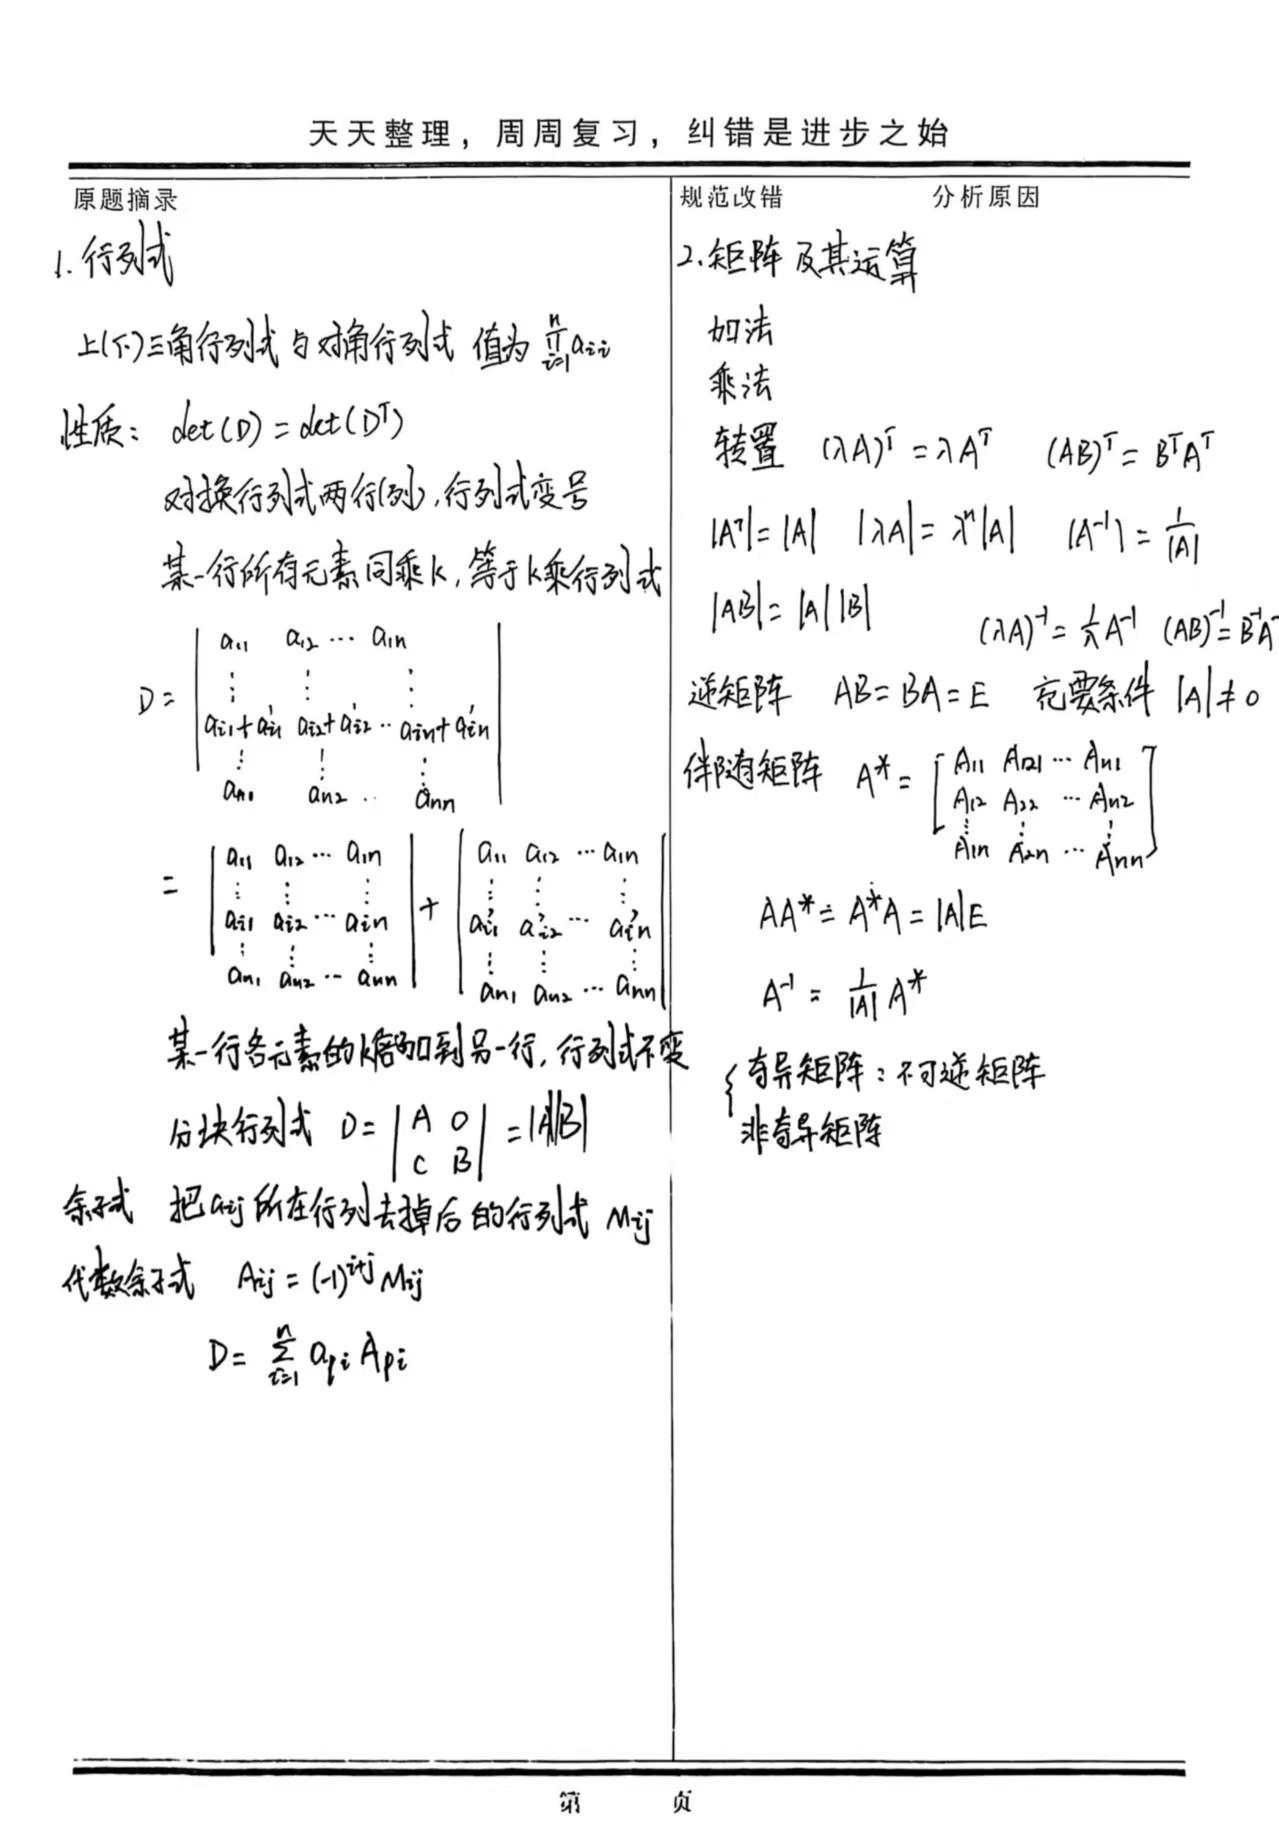 天天整理，周周复习，纠错是进步之始
原题摘录
1. 行列式
上(下)三角行列式与对角行列式 值为 ∏_{i=1}^{n} a_{ii}
性质： det(D) = det(D^T)
对换行列式两行(列)，行列式变号
某一行所有元素同乘k，等于k乘行列式
D = | a_{11} a_{12} ⋯ a_{1n} |
⋮ ⋮ ⋮
a_{i1}+a'_{i1} a_{i2}+a'_{i2} ⋯ a_{in}+a'_{in}
⋮ ⋮ ⋮
a_{n1} a_{n2} ⋯ a_{nn}
= | a_{11} a_{12} ⋯ a_{1n} | + | a_{11} a_{12} ⋯ a_{1n} |
⋮ ⋮ ⋮ ⋮ ⋮ ⋮
a_{i1} a_{i2} ⋯ a_{in} a'_{i1} a'_{i2} ⋯ a'_{in}
⋮ ⋮ ⋮ ⋮ ⋮ ⋮
a_{n1} a_{n2} ⋯ a_{nn} a_{n1} a_{n2} ⋯ a_{nn}
某一行各元素的k倍加到另一行，行列式不变
分块行列式 D = | A 0 | = |A||B|
C B
余子式 把a_{ij}所在行列去掉后的行列式 M_{ij}
代数余子式 A_{ij} = (-1)^{i+j} M_{ij}
D = ∑_{i=1}^{n} a_{pi} A_{pi}
规范改错 分析原因
2. 矩阵及其运算
加法
乘法
转置 (λA)^T = λA^T (AB)^T = B^T A^T
|A^T| = |A| |λA| = λ^n|A| |A^{-1}| = 1/|A|
|AB| = |A||B| (λA)^{-1} = 1/λ A^{-1} (AB)^{-1} = B^{-1}A^{-1}
逆矩阵 AB = BA = E 充要条件 |A| ≠ 0
伴随矩阵 A* = [ A_{11} A_{21} ⋯ A_{n1}
A_{12} A_{22} ⋯ A_{n2}
⋮ ⋮ ⋮
A_{1n} A_{2n} ⋯ A_{nn} ]
AA* = A*A = |A|E
A^{-1} = 1/|A| A*
{ 奇异矩阵：不可逆矩阵
非奇异矩阵
第 页